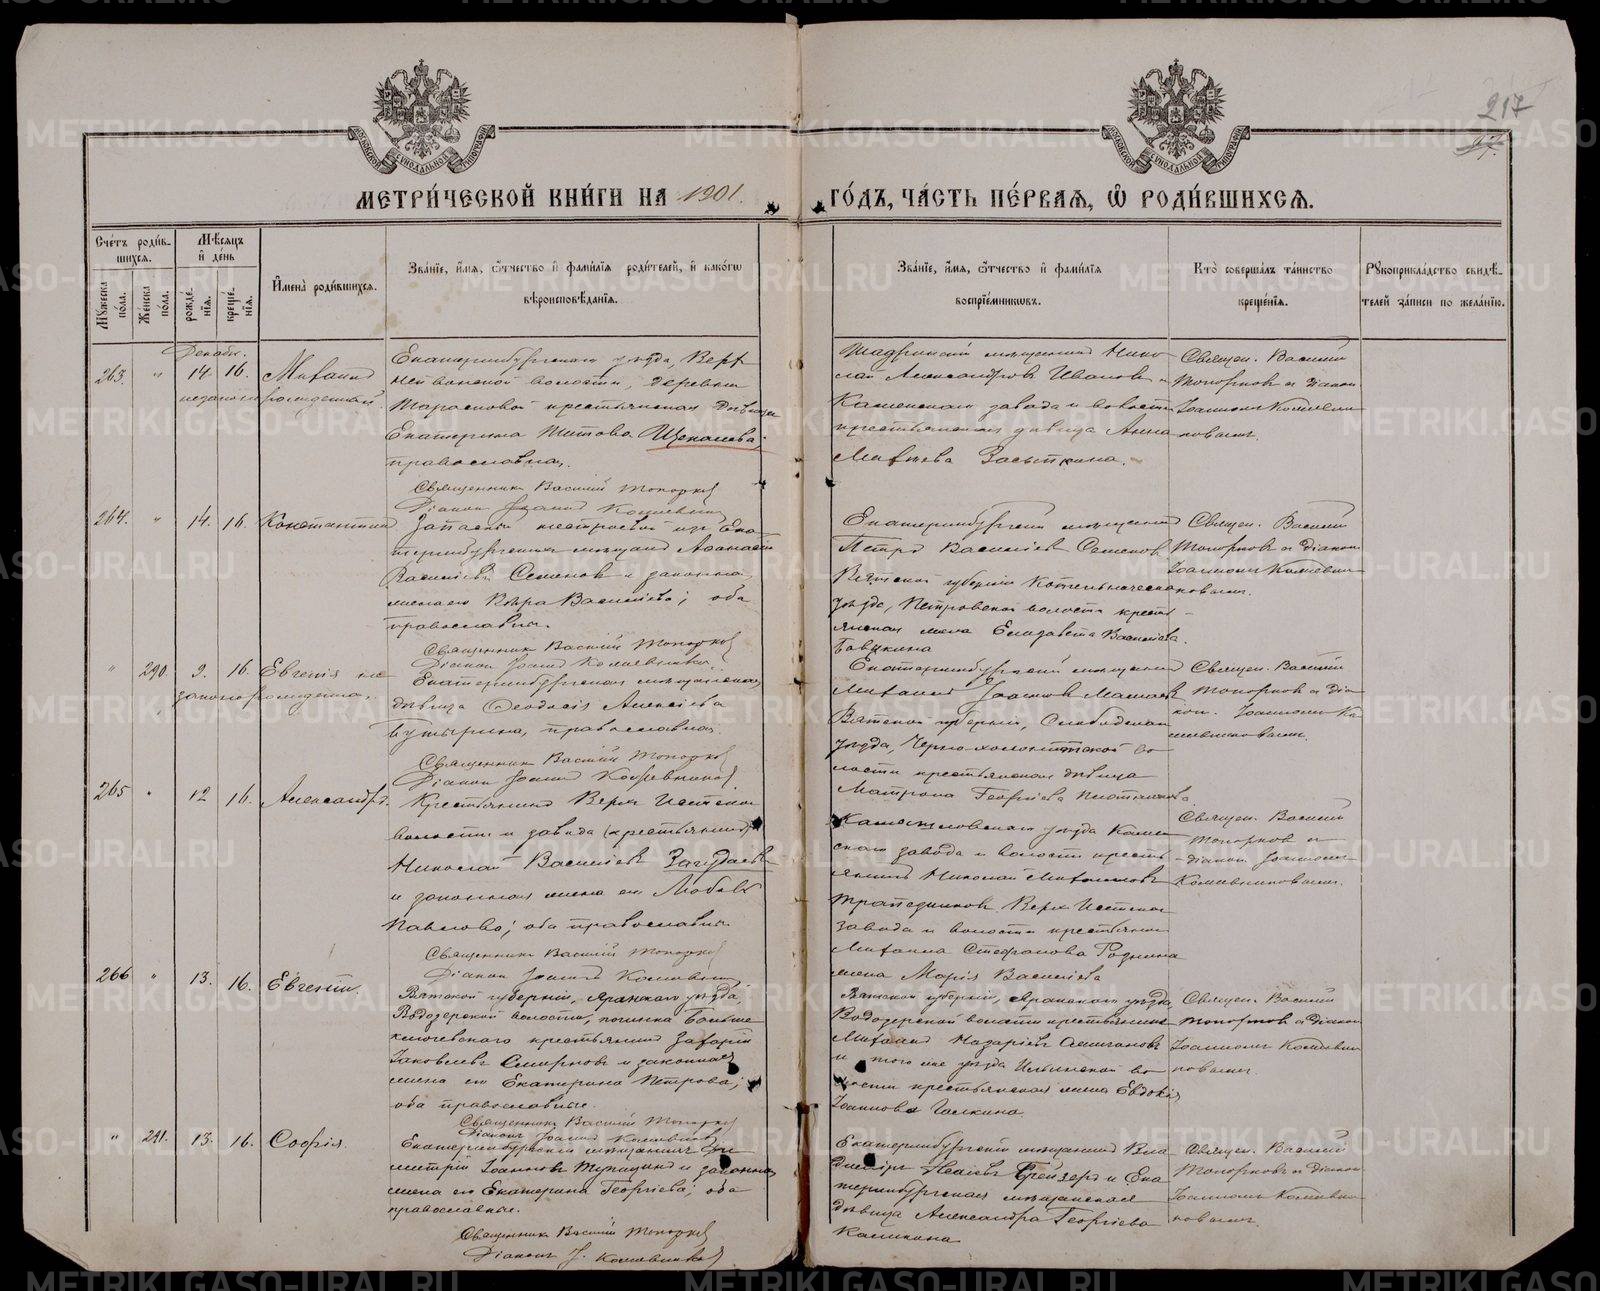 217
97.
МЕТРИ́ЧЕСКОЙ КНИ́ГИ НА 1901. ГО́ДЪ, ЧА́СТЬ ПЕ́РВАЯ, Ѿ РОДИ́ВШИХСЯ.
Сче́тъ роди́вшихся.
Му́жеска по́ла.
Же́нска по́ла.
Мѣ́сяцъ и де́нь
рожде́нїя.
креще́нїя.
И҆мена̀ роди́вшихся.
Зва́нїе, и҆́мя, ѻ҆́тчество и҆ фами́лїя роди́телей, и҆ како́гѡ вѣроисповѣ́данїя.
Зва́нїе, и҆́мя, ѻ҆́тчество и҆ фами́лїя воспрїе́мниковъ.
Кто̀ соверша́лъ та́инство креще́нїя.
Рукоприкла́дство свидѣ́телей за́писи по жела́нїю.
Декабр.
263. " 14. 16. Михаилъ
незаконнорожденный.
Екатеринбургскаго уѣзда, Верх
нейвинской волости, деревни
Тарасковой крестьянская дѣвица
Екатерина Титова Щекалева;
православная.
Священникъ Василій Топорков
Діаконъ Іоаннъ
Шадринскій мѣщанинъ Нико
лай Александровъ Ивановъ и
Каменскаго завода и волости
крестьянская дѣвица Анна
Матвеева
Священ. Василій
Топорковъ и діакон
Іоанномъ
новымъ.
264. " 14. 16. Константинъ
Запасный изъ Ека
теринбургскихъ мѣщанъ Аѳанасій
Василіевъ Семеновъ и законная
жена его Васильева; оба
православные.
Священникъ Василій Топорков
Діаконъ Іоаннъ
Екатеринбургскій мѣщанинъ
Петръ Василіевъ Семенов
Вятской губерніи Котельническа
уѣзда, Петровской волости кресть-
янская жена Елизавета Васильева
Бабикина
Священ. Василій
Топорковъ и діакон
Іоанномъ
новымъ.
" 290. 9. 16. Евгенія не
законнорожденная.
Екатеринбургская мѣщанская
дѣвица Ѳеодосія Алексіева
Бутырина, православная.
Священникъ Василій Топорков
Діаконъ Іоаннъ
Екатеринбургскій мѣщанинъ
Михаилъ Іоанновъ
Вятской губерніи, Слободскаго
уѣзда, Черно-холуницкой во
лости крестьянская дѣвица
Матрона Георгіева
Священ. Василій
Топорковъ и діа
кон. Іоанномъ
265 " 12 16. Александръ.
Крестьянинъ Верх Исетской
волости и завода (крестьянинъ)
Николай Василіевъ Загудаевъ
и законная жена его Любовь
Павлова; оба православные
Священникъ Василій Топорков
Діаконъ Іоаннъ
Камышловскаго уѣзда Камен
скаго завода и волости кресть
янинъ Николай Михаиловъ
Трапезниковъ Верх Исетскаго
завода и волости крестьянина
Михаила Стефанова Роднина
жена Марія Васильева
Священ. Василій
Топорковъ и
діакон Іоанном
266 " 13. 16. Евгеній.
Вятской губерніи, Яранскаго уѣзда
Водозерской волости, починка Больше
крестьянинъ Захарій
Іаковлевъ Смирновъ и законная
жена его Екатерина Петрова;
оба православные.
Священникъ Василій Топорков
Діаконъ Іоаннъ
Вятской губерніи, Яранскаго уѣзда
Водозерской волости крестьянинъ
Михаилъ Назаріевъ
и того же уѣзда Ильинской во
лости крестьянская жена Евдокія
Іоаннова Галкина
Священ. Василій
Топорков и діакон
Іоанномъ
новымъ.
" 291. 13. 16. Софія.
Екатеринбургскій мѣщанинъ Ди
митрій Іоанновъ и законная
жена его Екатерина Георгіева; оба
православные.
Священникъ Василій Топорков
Діаконъ І.
Екатеринбургскій мѣщанинъ Вла
диміръ и Ека
теринбургская мѣщанская
дѣвица Александра Георгіева
Калинина
Священ. Василій
Топорковъ и діакон
Іоанномъ
новымъ.
METRIKI.GASO-URAL.RU